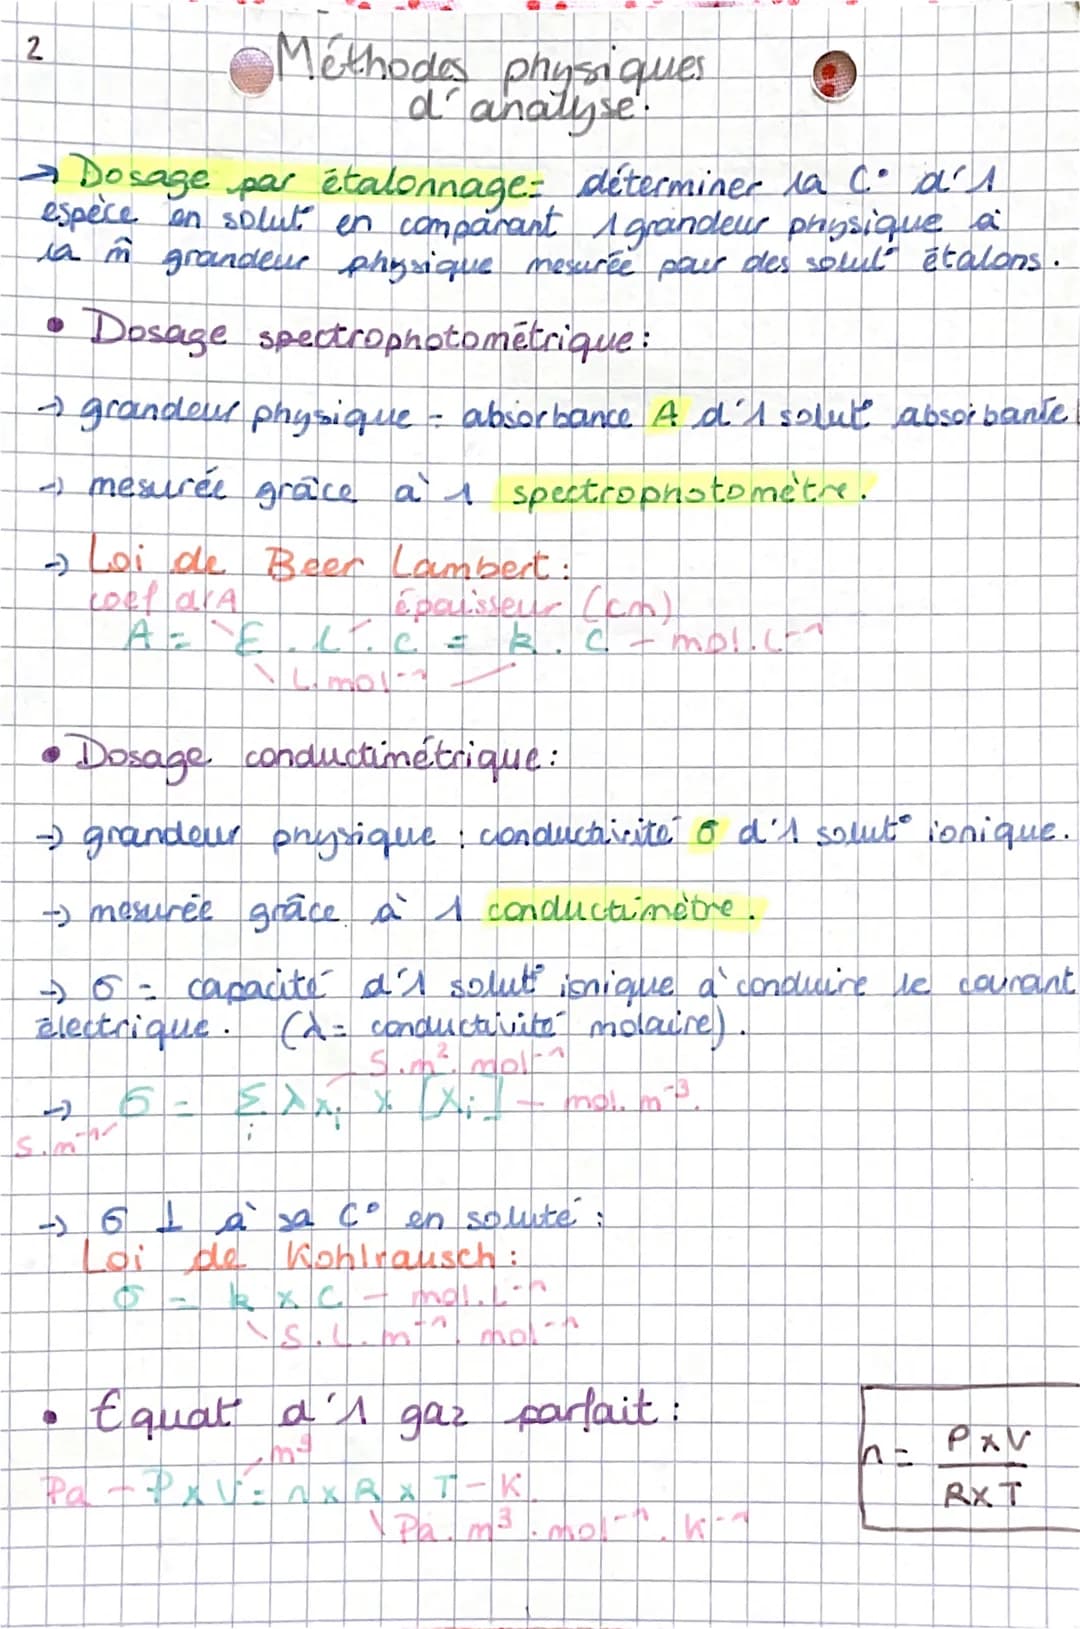 2
Méthodes physiques
d'analyse.
→ Dosage par étalonnage = déterminer la C° d'1
espèce en solut° en comparant 1 grandeur physique à
la m̂ grandeur physique mesurée pour des solut° étalons.
• Dosage spectrophotométrique :
→ grandeur physique = absorbance A d'1 solut° absorbante
→ mesurée grâce à 1 spectrophotomètre.
→ Loi de Beer Lambert :
coef d'A épaisseur (cm)
A = E . L . C = k . C - mol.L⁻¹
L.mol⁻¹
• Dosage conductimétrique :
→ grandeur physique : conductivité σ d'1 solut° ionique.
→ mesurée grâce à 1 conductimètre.
→ σ = capacité d'1 solut° ionique à conduire le courant
électrique. (λ = conductivité molaire).
S.m².mol⁻¹
→ σ = Σ λxᵢ × [Xᵢ] - mol.m⁻³.
i
S.m⁻¹
→ σ ⊥ à sa C° en soluté :
Loi de Kohlrausch :
σ = k × C - mol.L⁻¹
S.L.m⁻¹.mol⁻¹
• Equat° d'1 gaz parfait :
m³
Pa - P × V = n × R × T - K
Pa.m³.mol⁻¹.K⁻¹
n = P×V
R×T